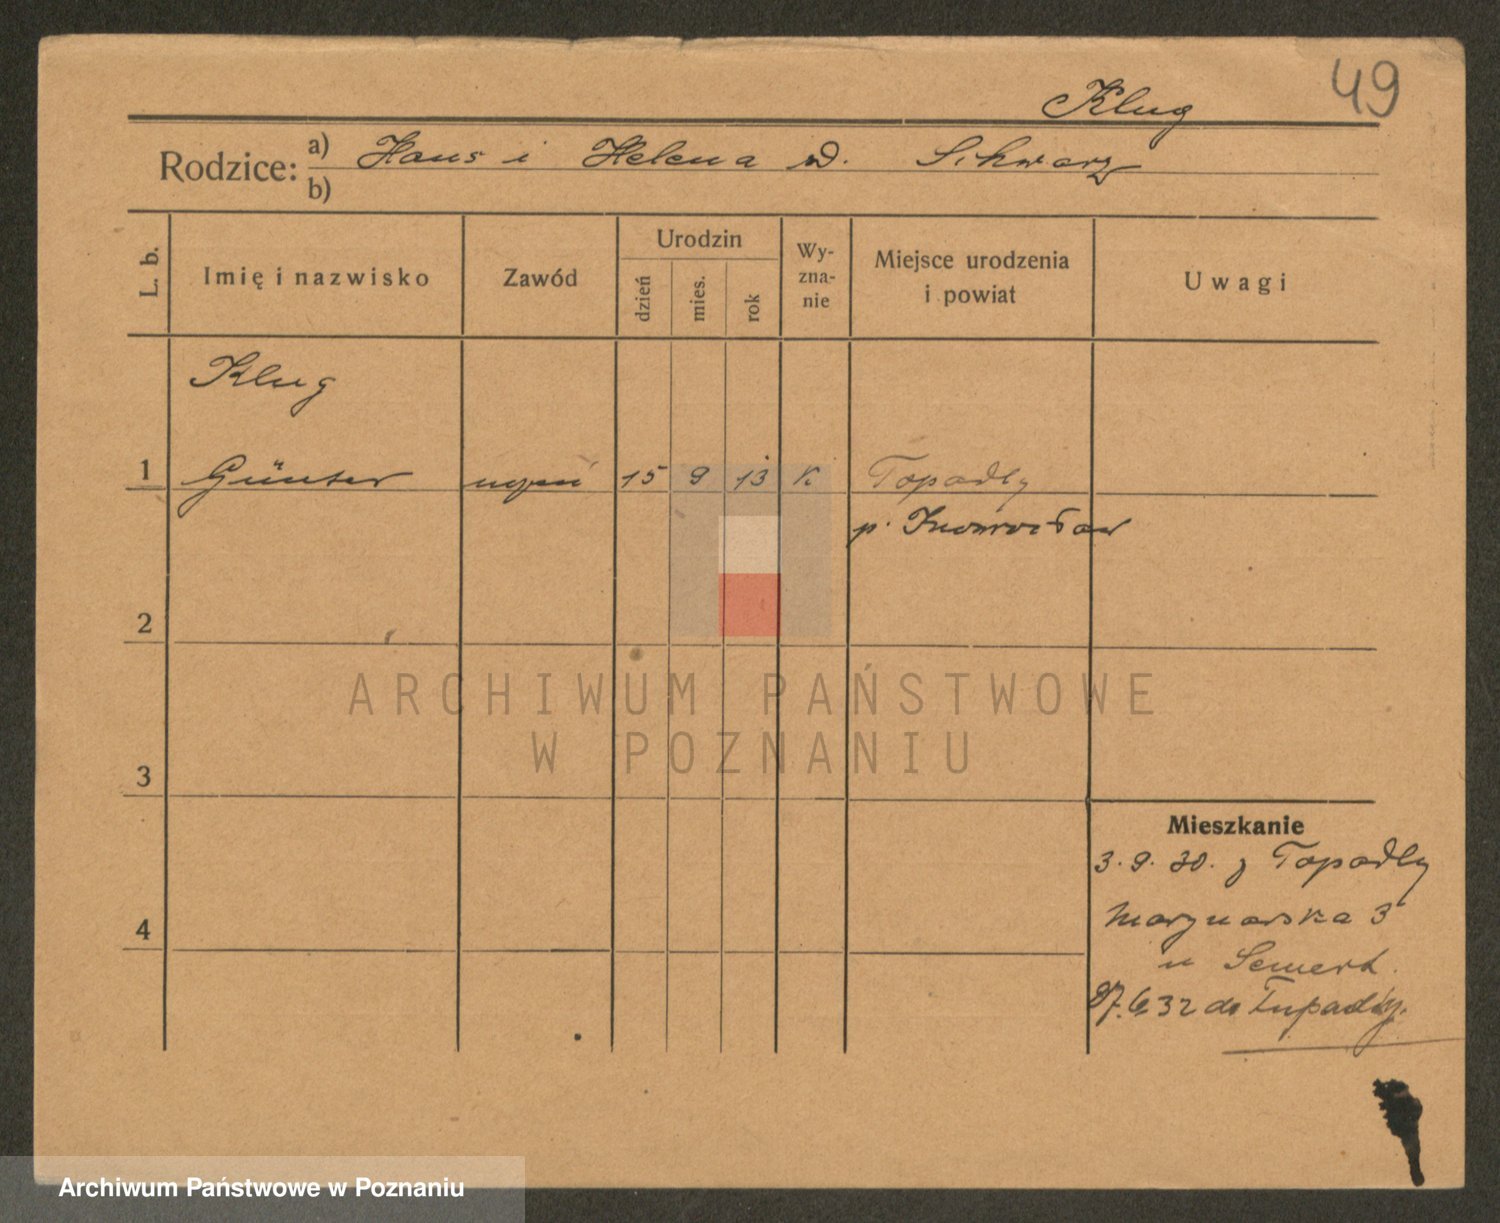 49
Klug
Rodzice: a) Hans i Helena d. Schwarz
b)
L. b. Imię i nazwisko Zawód Urodzin dzień mies. rok Wy-zna-nie Miejsce urodzenia i powiat Uwagi
Klug
1 Günter uczeń 15 9 13 K Topadly
p. Inowrocław
2
ARCHIWUM PAŃSTWOWE
W POZNANIU
3
Mieszkanie
3.9.30. z Topadly
Marynarska 3
4
u
27.6.32 do Tupadły.
Archiwum Państwowe w Poznaniu